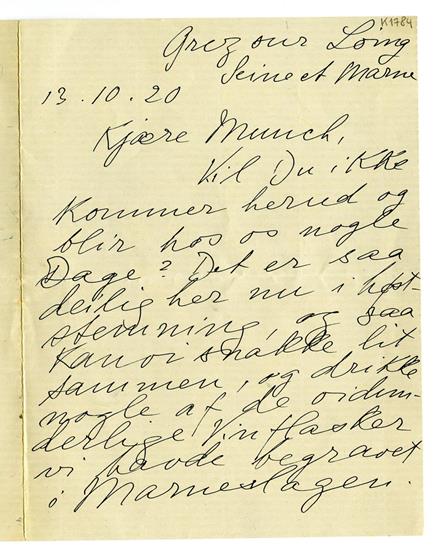 K1784
Grez sur Loing
Seine et Marne
13.10.20
Kjære Munch,
Vil Du ikke
kommer herud og
blir hos os nogle
Dage? Det er saa
deilig her nu i høst-
stemning, og saa
kan vi snakke lit
sammen, og drikke
nogle af de vidun-
derlige Vinflasker
vi havde begravet
i Marneslagen.